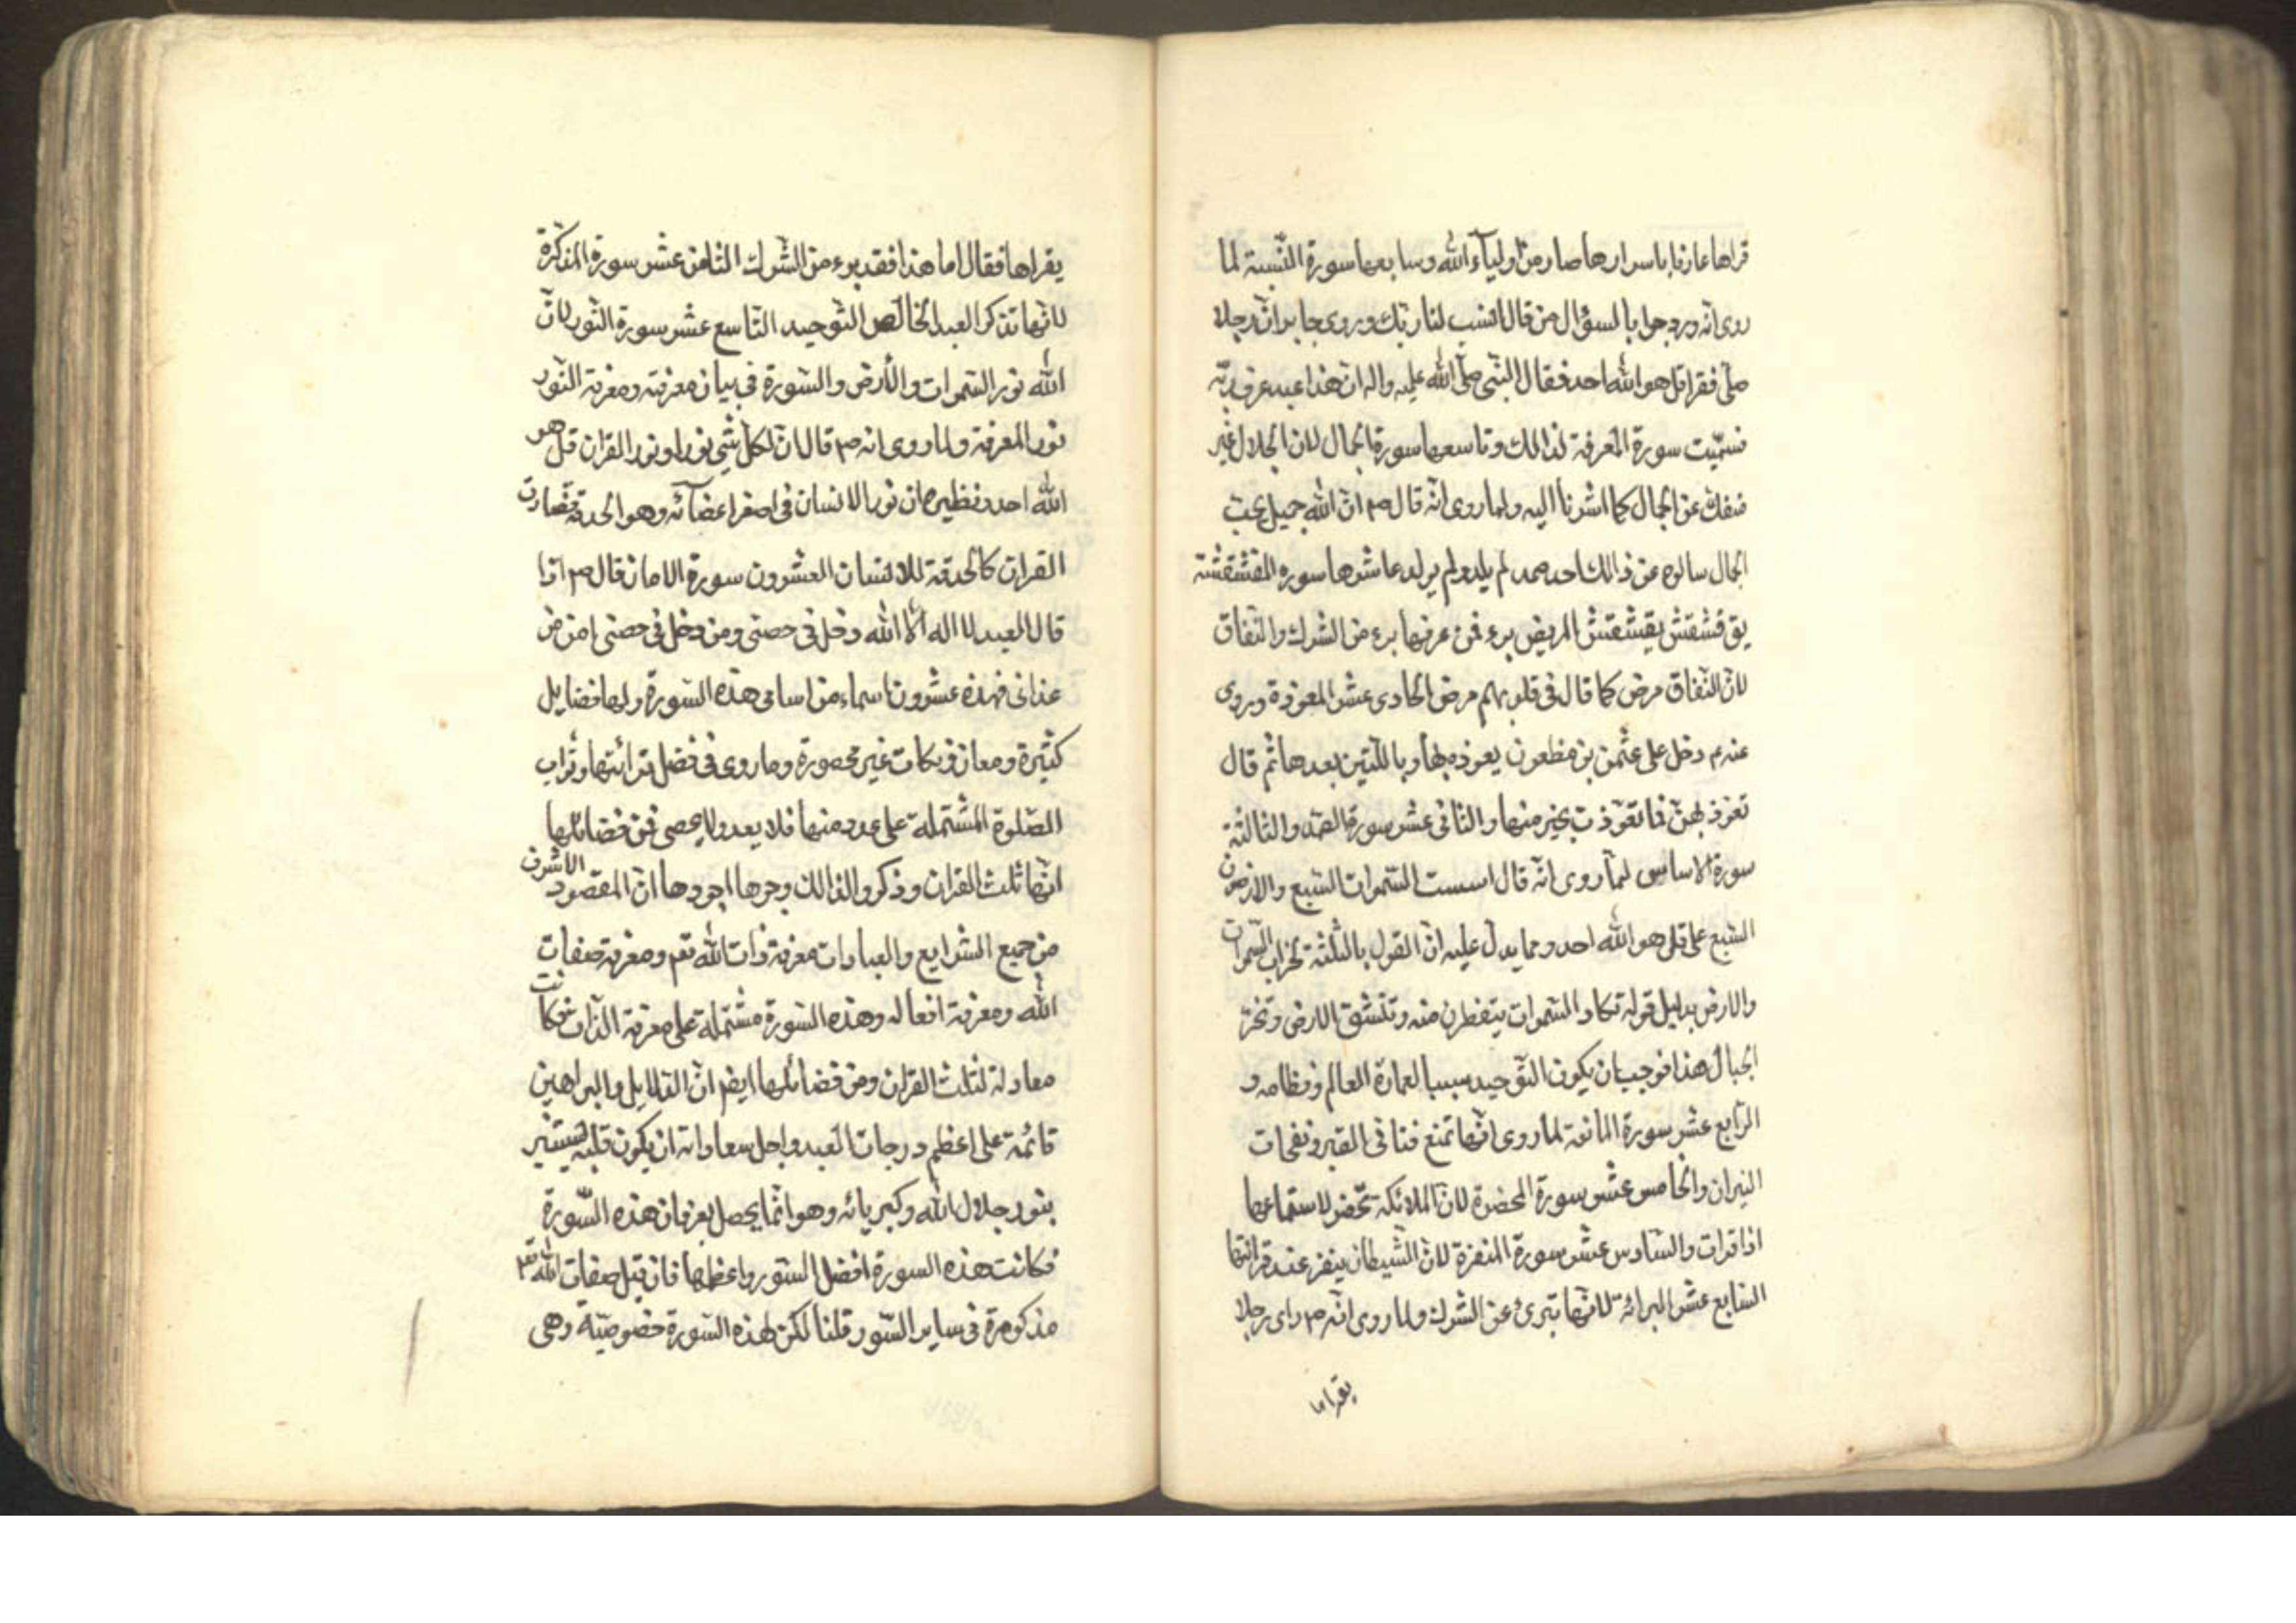 قراها عارفا باسرارها صار من اولياء الله وسابعها سورة النسبة لما
روى انه ورد جوابا لسؤال من قال انسب لنا ربك وروى جابر ان رجلا
صلى فقرا قل هو الله احد فقال النبي صلى الله عليه واله ان هذا عبد عرف ربه
فسميت سورة المعرفة لذالك وتاسعها سورة الجمال لان الجلال غير
منفك عن الجمال كما اشرنا اليه ولما روى انه قال ص ان الله جميل يحب
الجمال سالوه عن ذالك احد صمد لم يلد ولم يولد عاشرها سورة المقشقشة
يق قشقش يقشقش المريض برء فمن عرفها برء من الشرك والنفاق
لان النفاق مرض كما قال في قلوبهم مرض الحادى عشر المعوذة وروى
عنه م دخل على عثمن بن مظعون يعوذه بها وبالتين بعدها ثم قال
تعوذ بهن فما تعوذت بخير منها والثانى عشر سورة الصمد والثالثة
سورة الاساس لما روى انه قال اسست السموات السبع والارضون
السبع على قل هو الله احد ومما يدل عليه ان القول بالثلثة لخراب السموات
والارض بدليل قوله تكاد السموات يتفطرن منه وتنشق الارض وتخر
الجبال هذا فوجب ان يكون التوحيد سببا لعمارة العالم ونظامه و
الرابع عشر سورة المانعة لما روى انها تمنع فتانى القبر ونفحات
النيران والخامس عشر سورة المحضرة لان الملائكة تحضر لاستماعها
اذا قرات والسادس عشر سورة المنفرة لان الشيطان ينفر عند قرائتها
السابع عشر البرائة لانها تبرئ عن الشرك ولما روى انه ص راى رجلا
يقراها
يقراها فقال اما هذا فقد برء من الشرك الثامن عشر سورة المذكرة
لانها تذكر العبد الخالص التوحيد التاسع عشر سورة النور لان
الله نور السموات والأرض والسورة في بيان معرفته ومعرفة النور
نور المعرفة ولما روى انه ص قال ان لكل شي نورا ونور القران قل هو
الله احد ونظيره ان نور الانسان في اصغر اعضائه وهو الحدقة فصارت
القران كالحدقة للانسان العشرون سورة الامان قال ص اذا
قال العبد لا اله الا الله دخل في حصنى ومن دخل في حصنى امن من
عذابى فهذه عشرون اسماء من اسامى هذه السورة ولها فضايل
كثيرة ومعان وبركات غير محصورة وما روى في فضل قرائتها وثواب
الصلوة المشتملة على عدد منها فلا يعد ولا يحصى فمن فضائلها
انها ثلث القران وذكروا لذالك وجوها اجودها ان المقصود الاشرف
من جميع الشرايع والعبادات معرفة ذات الله تعم ومعرفة صفات
الله ومعرفة افعاله وهذه السورة مشتملة على معرفة الذات فكانت
معادلة لثلث القران ومن فضائلها ايضا ان الدلايل والبراهين
قائمة على اعظم درجات العبد واجل سعاداته ان يكون قلبه يستنير
بنور جلال الله وكبريائه وهو انما يحصل بعرفان هذه السورة
فكانت هذه السورة افضل السور واعظمها فان قيل صفات الله تعم
مذكورة في ساير السور قلنا لكن لهذه السورة خصوصية وهى